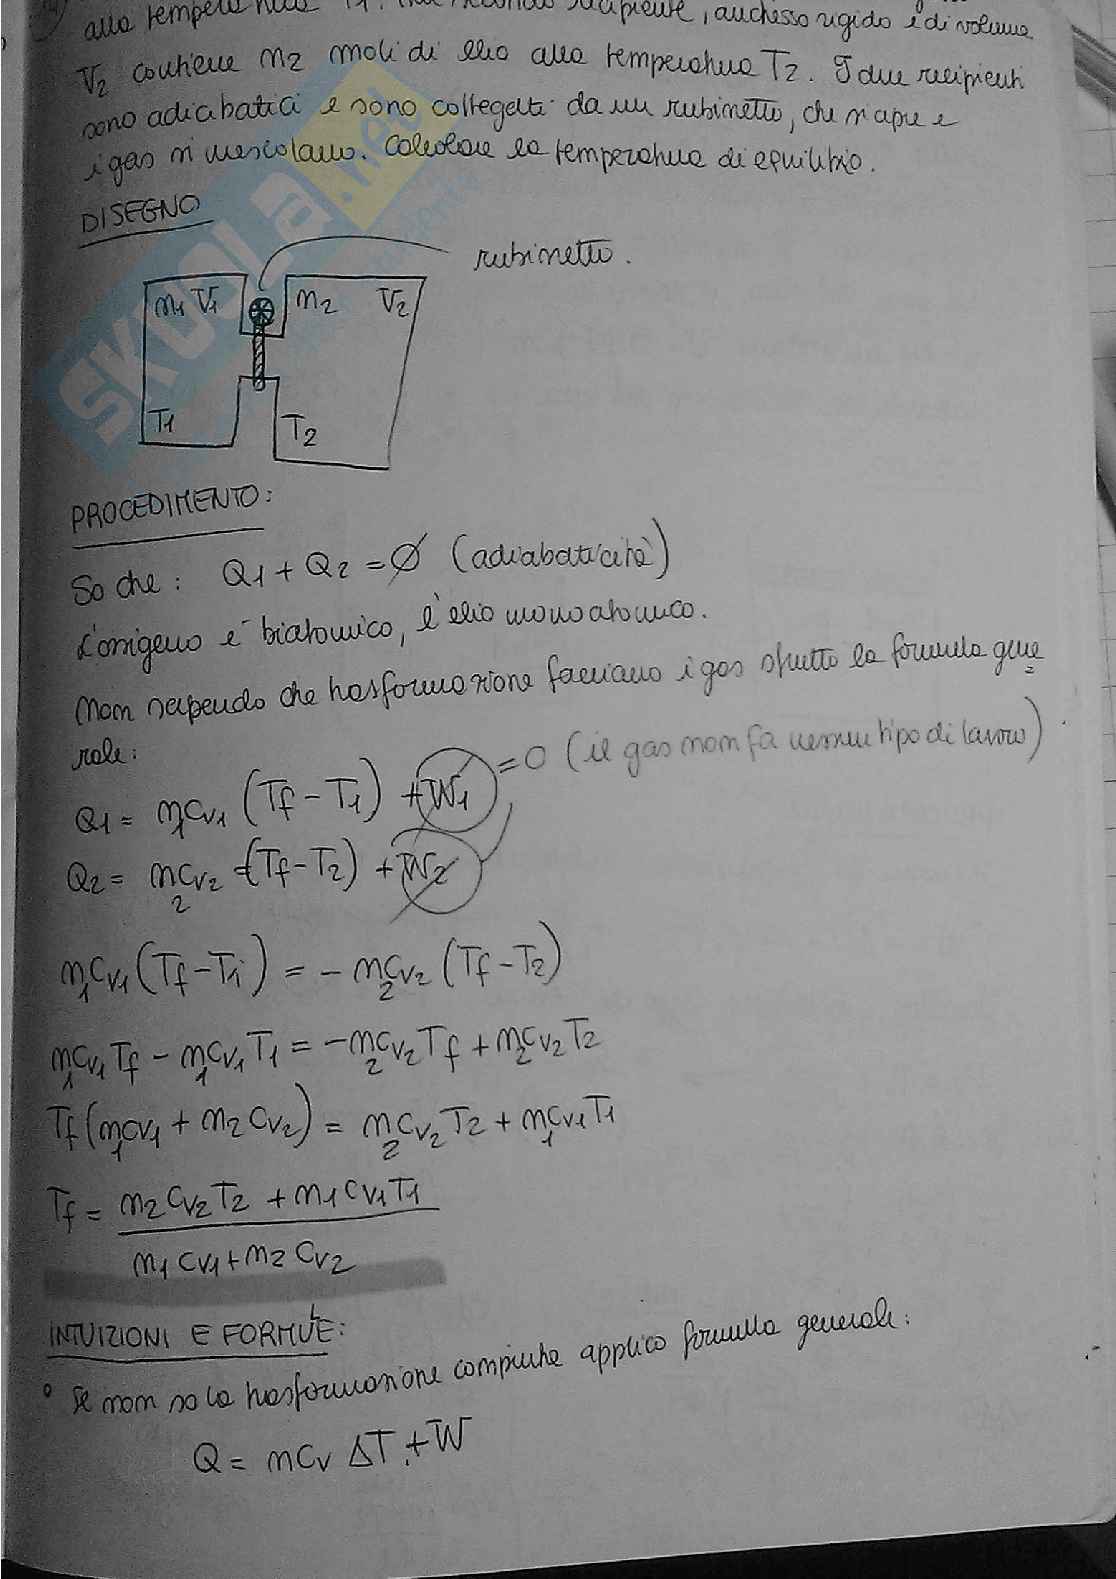 alla temperatura T1. Un secondo recipiente, anch'esso rigido e di volume
V2 contiene n2 moli di elio alla temperatura T2. I due recipienti
sono adiabatici e sono collegati da un rubinetto, che si apre e
i gas si mescolano. Calcolare la temperatura di equilibrio.
DISEGNO
rubinetto.
n1 V1 n2 V2
T1 T2
PROCEDIMENTO:
So che: Q1 + Q2 = ∅ (adiabaticità)
L'ossigeno è biatomico, l'elio monoatomico.
Non sapendo che trasformazione facciano i gas sfrutto la formula gene
rale:
Q1 = n1cv1 (Tf - T1) + W1 = 0 (il gas non fa nessun tipo di lavoro)
Q2 = n2cv2 (Tf - T2) + W2
n1cv1 (Tf - Ti) = - n2cv2 (Tf - T2)
n1cv1 Tf - n1cv1 T1 = - n2cv2 Tf + n2cv2 T2
Tf (n1cv1 + n2 cv2) = n2cv2 T2 + n1cv1 T1
Tf = n2 cv2 T2 + n1 cv1 T1
n1 cv1 + n2 cv2
INTUIZIONI E FORMULE:
° Se non so la trasformazione compiuta applico formula generale:
Q = ncv ΔT + W
SKUOLA.net